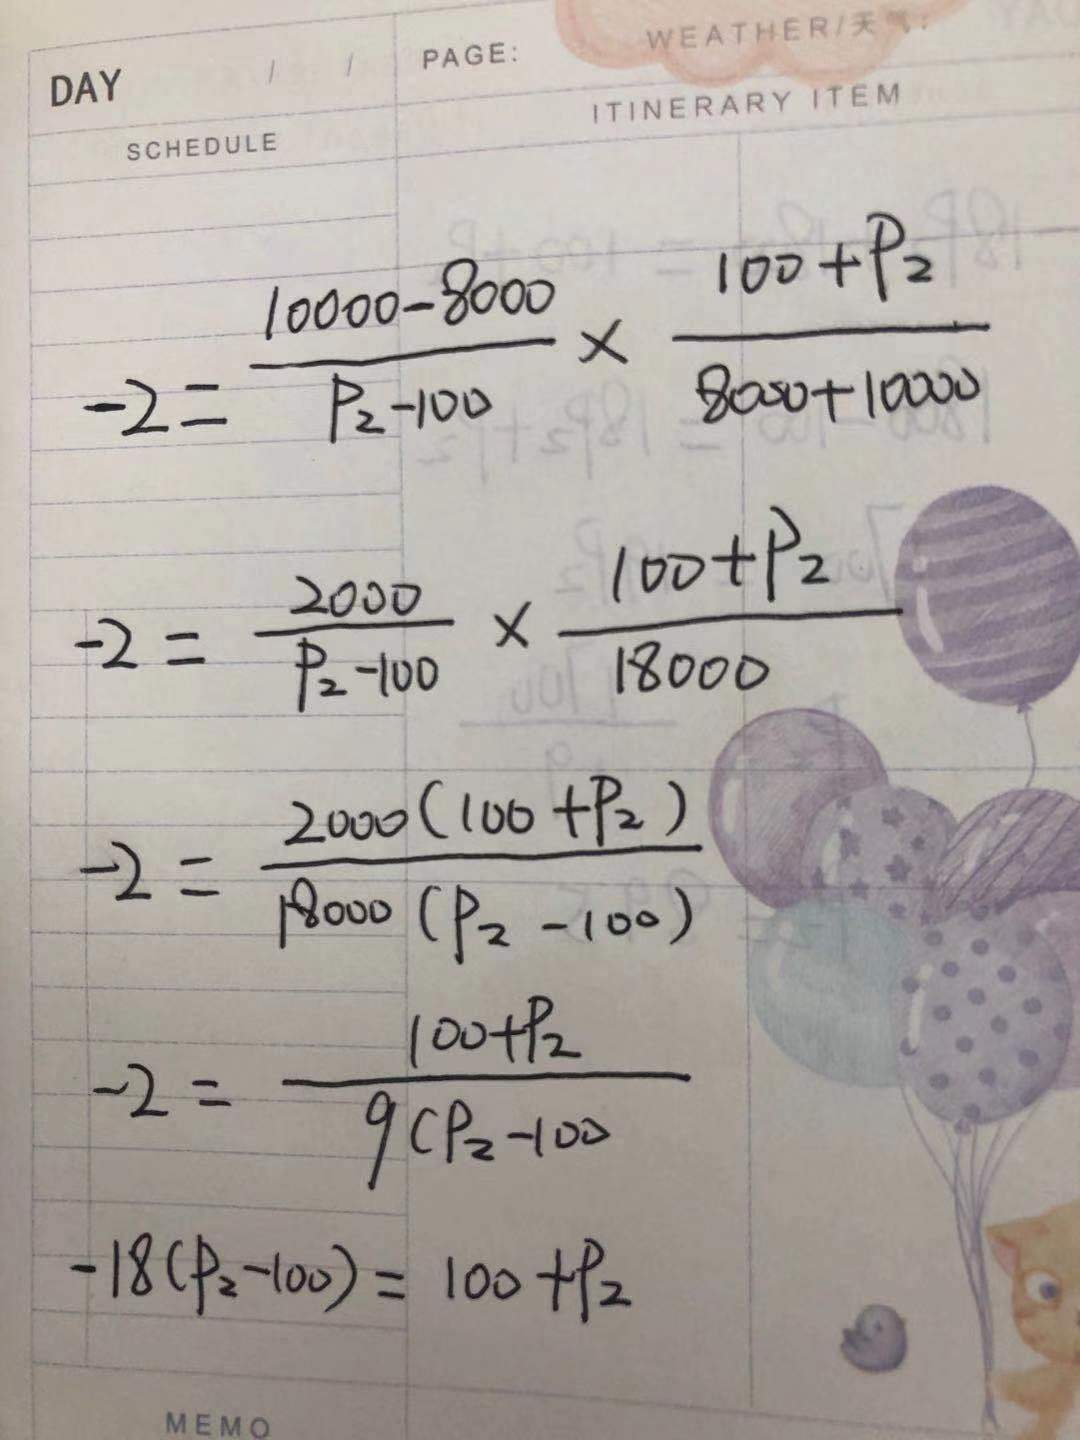 DAY / / PAGE: WEATHER/天气:
SCHEDULE ITINERARY ITEM
-2 = \frac{10000-8000}{P_2-100} × \frac{100+P_2}{8000+10000}
-2 = \frac{2000}{P_2-100} × \frac{100+P_2}{18000}
-2 = \frac{2000(100+P_2)}{18000(P_2-100)}
-2 = \frac{100+P_2}{9(P_2-100}
-18(P_2-100) = 100+P_2
MEMO